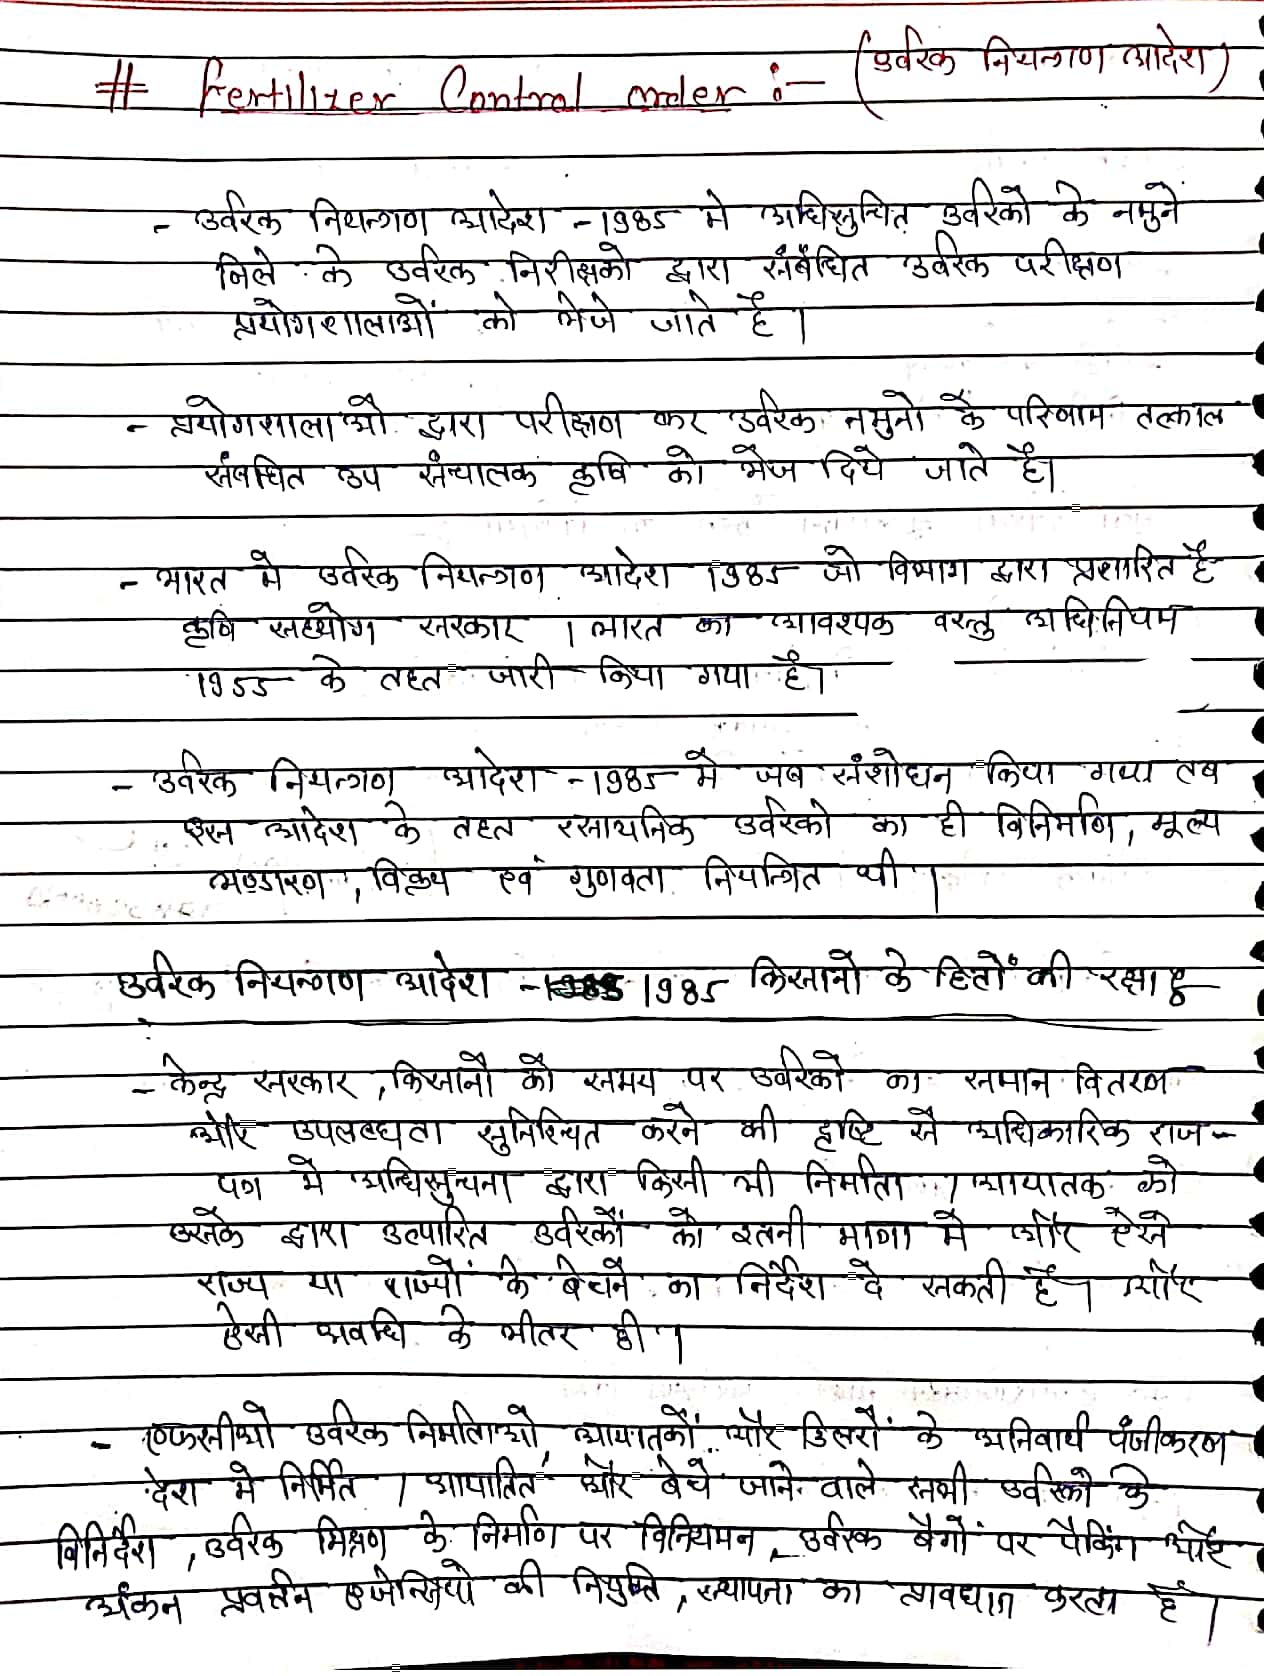 (उर्वरक नियन्त्रण आदेश)
# Fertilizer Control order :-
- उर्वरक नियन्त्रण आदेश -1985 मे अधिसुचित उर्वरको के नमुने
जिले के उर्वरक निरीक्षको द्वारा संबंधित उर्वरक परीक्षण
प्रयोगशालाओं को भेजे जाते है।
- प्रयोगशालाओ द्वारा परीक्षण कर उर्वरक नमुनो के परिणाम तत्काल
संबधित उप संचालक कृषि को भेज दिये जाते है।
- भारत मे उर्वरक नियन्त्रण आदेश 1985 जो विभाग द्वारा प्रशारित है
कृषि सहयोग सरकार । भारत का आवश्यक वस्तु अधिनियम
1955 के तहत जारी किया गया है।
- उर्वरक नियन्त्रण आदेश -1985 मे जब संशोधन किया गया तब
इस आदेश के तहत रसायनिक उर्वरको का ही विनिर्माण, मूल्य
भण्डारण, विक्रय एवं गुणवता नियन्त्रित थी।
उर्वरक नियन्त्रण आदेश - 1985 किसानो के हितों की रक्षा हु
- केन्द्र सरकार, किसानो को समय पर उर्वरको का समान वितरण
और उपलब्धता सुनिश्चित करने की दृष्टि से अधिकारिक राज-
पत्र मे अधिसुचना द्वारा किसी भी निर्माता / आयातक को
उसके द्वारा उत्पादित उर्वरकों को इतनी मात्रा मे और ऐसे
राज्य या राज्यों के बेचने का निर्देश दे सकती है। और
ऐसी अवधि के भीतर ही।
- एफसीओ उर्वरक निर्माताओ, आयातकों और डिलरों के अनिवार्य पंजीकरण
देश मे निर्मित / आयातित और बेचे जाने वाले सभी उर्वरको के
विनिर्देश, उर्वरक मिश्रण के निर्माण पर विनियमन, उर्वरक बैगों पर पैकिंग और
अंकन प्रवर्तन एजेन्सियो की नियुक्ति, स्थापना का प्रावधान करता है।